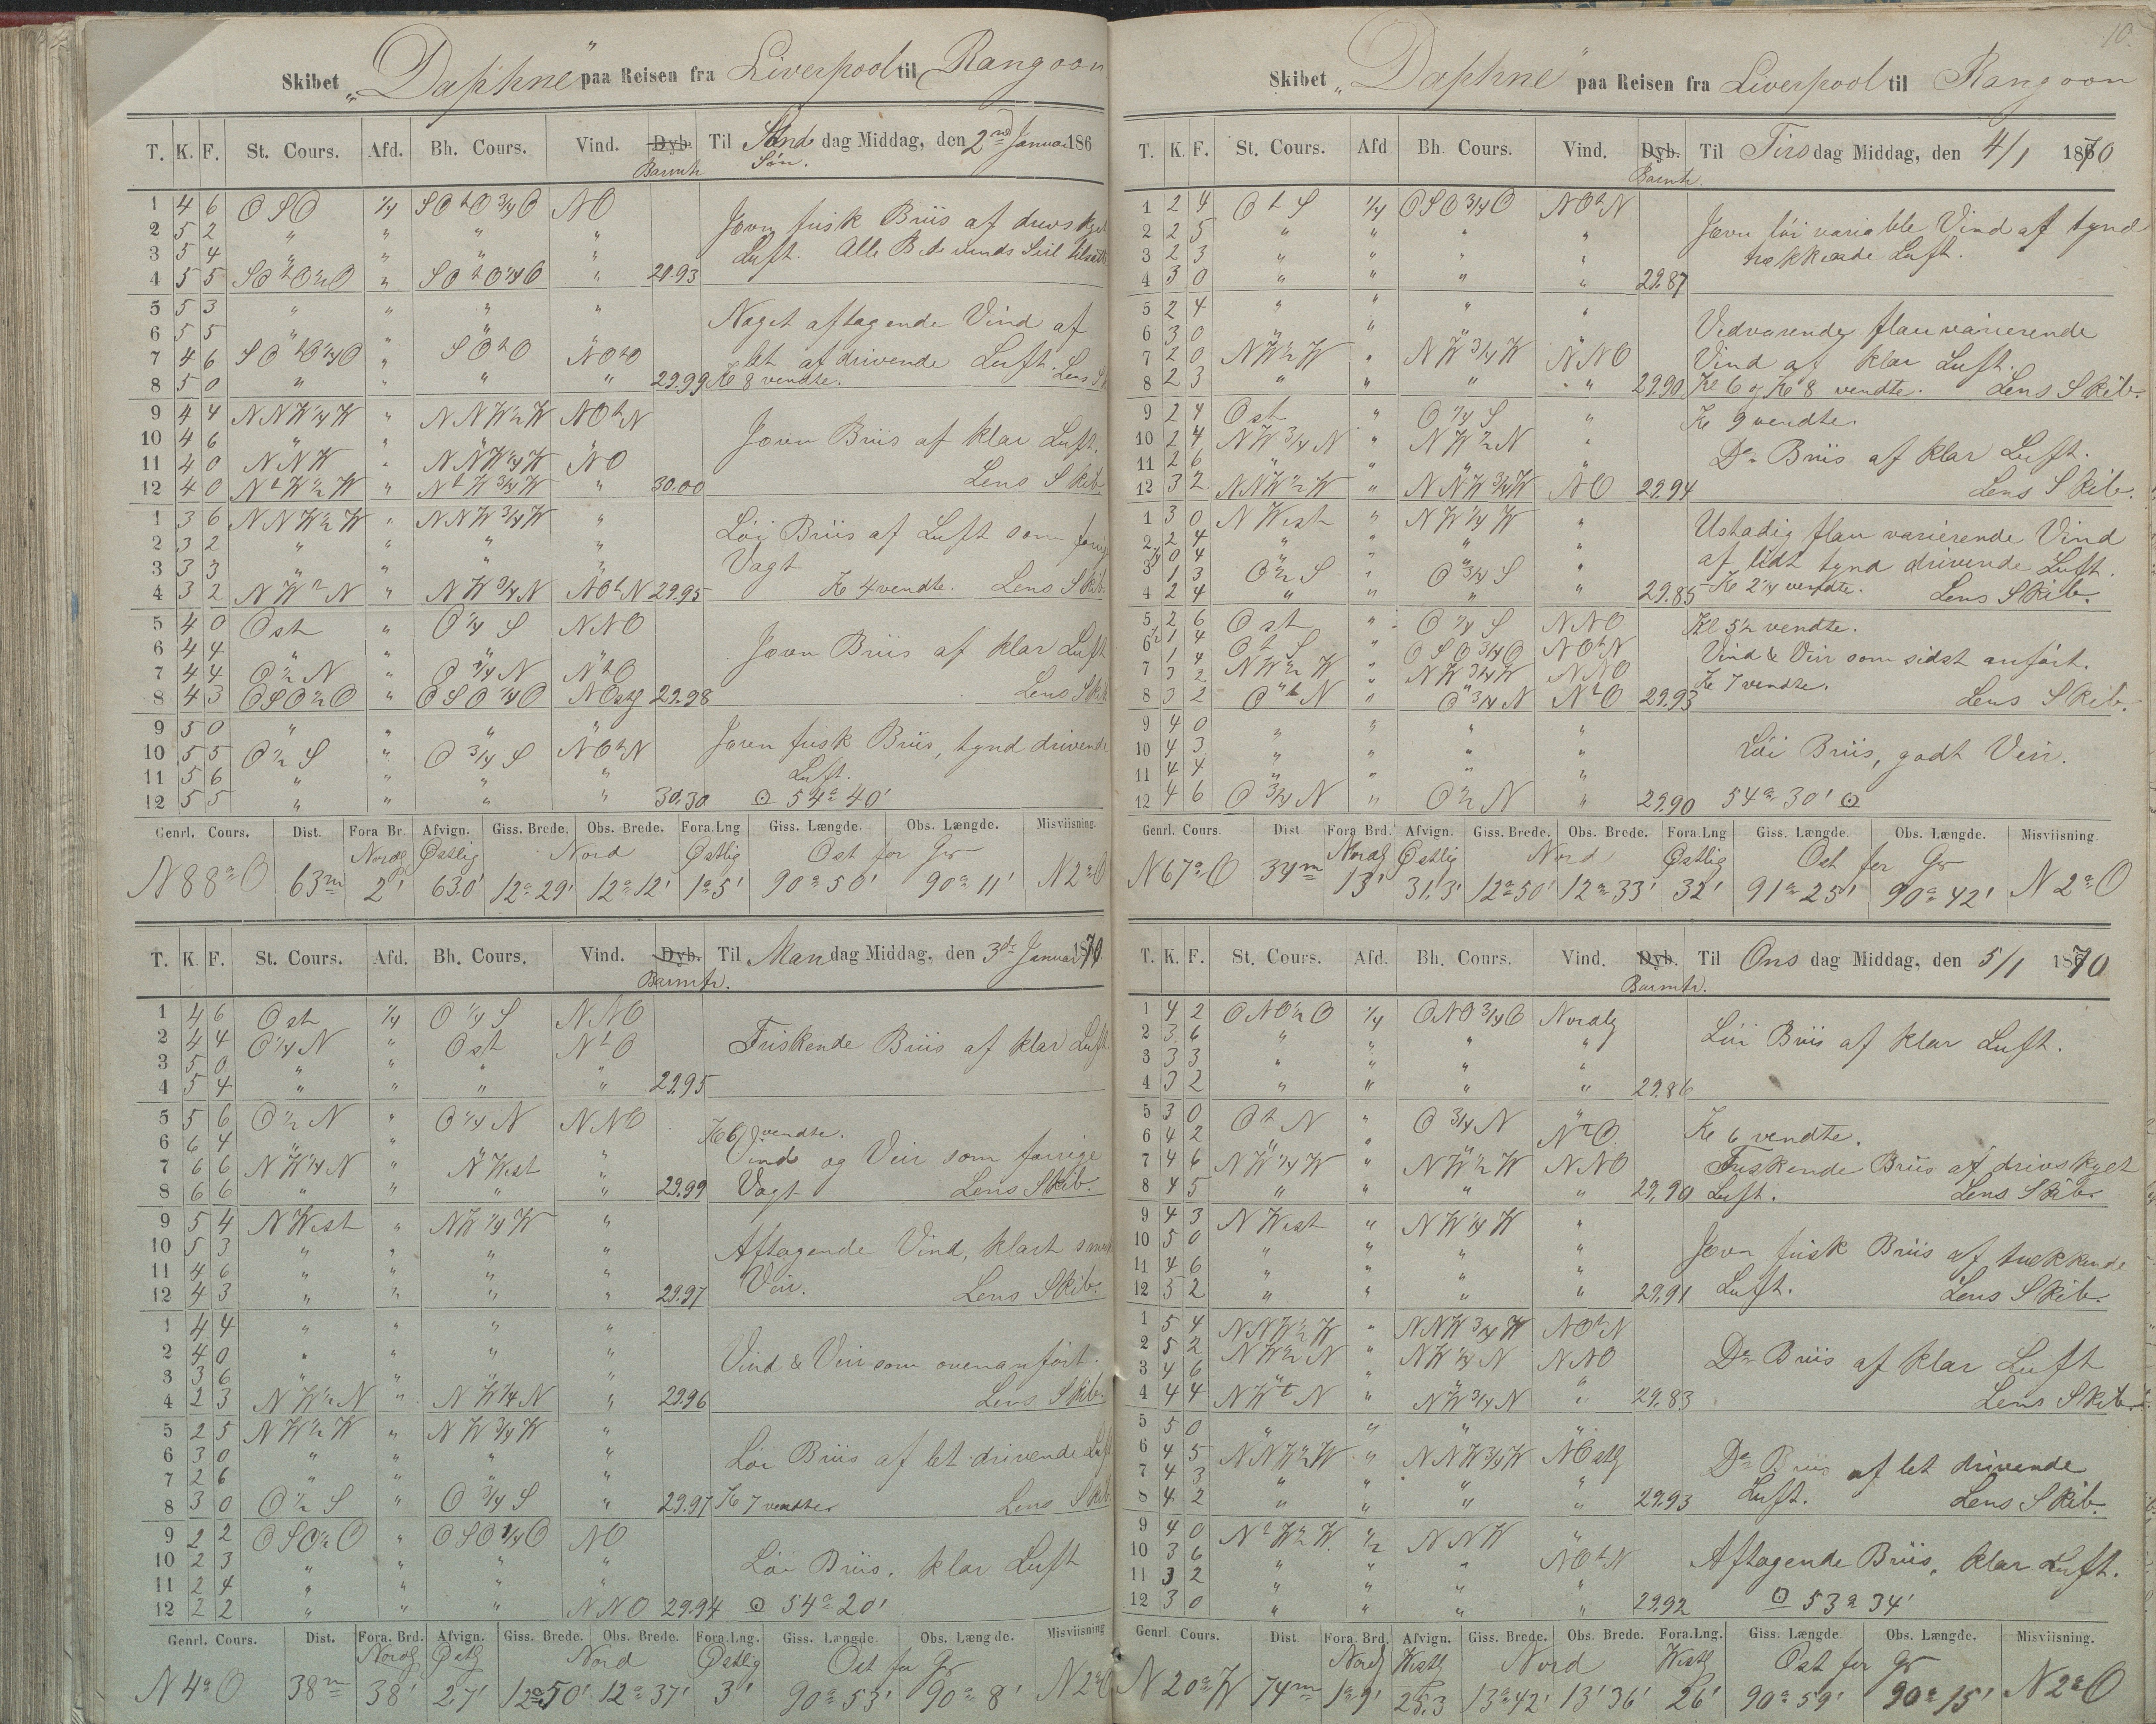 Skibet „Daphne“ paa Reisen fra Liverpool til Rangoon
T. K. F. St. Cours. Afd. Bh. Cours. Vind. Dyb. Til Søndag Middag, den 2nd Januar 186
Barmtr Søn.
1 4 6 OSO 1/4 SOtO 3/4 O NO
2 5 2 " " " "
3 5 4 " " " "
4 5 5 SOtO 1/2 O " SOtO 1/4 O " 29.93
Jevn frisk Briis af
Luft. Alle Bidevinds Seil tilsatte
5 5 3 " " " "
6 5 5 " " "
7 4 6 SOtO 1/4 O " SOtO NOtO
8 5 0 " " " " 29.99
Noget aftagende Vind af
let afdrivende Luft. Lens
Kl 8 vendte.
9 4 4 NNW 1/4 W " NNW 1/2 W NOtN
10 4 6 " " " "
11 4 0 NNW " NNW 1/4 W NO
12 4 0 NtW 1/2 W " NtW 3/4 W " 30.00
Jevn Briis af klar Luft.
Lens Skib.
1 3 6 NNW 1/2 W " NNW 3/4 W "
2 3 2 " " " "
3 3 3 " " " "
4 3 2 NW 1/2 N " NW 1/4 N NOtN 29.95
Løi Briis af Luft som forrige
Vagt
Kl 4 vendte. Lens Skib.
5 4 0 Ost " O 1/4 S NNO
6 4 4 " " " "
7 4 4 O 1/2 N " O 1/4 N NtO
8 4 3 OSO 1/2 O " OSO 1/4 O NOstlg 29.98
Jevn Briis af klar Luft
Lens Skib
9 5 0 " " " "
10 5 5 O 1/2 S " O 3/4 S NOtN
11 5 6 " " " "
12 5 5 " " " " 30.30
Jevn frisk Briis, tynd drivende
Luft.
⊙ 54° 40'
Genrl. Cours. Dist. Fora Br. Afvign. Giss. Brede. Obs. Brede. Fora.Lng Giss. Længde. Obs. Længde. Misviisning.
Nordlg Østlig Nord Østlig Ost for Gr
N 88° O 63m 2' 63.0' 12° 29' 12° 12' 1° 5' 90° 50' 90° 11' N 2° O
T. K. F. St. Cours. Afd. Bh. Cours. Vind. Dyb. Til Mandag Middag, den 3de Januar 1870
Barmtr.
1 4 6 Ost 1/4 O 1/4 S NNO
2 4 4 O 1/4 N " Ost NtO
3 5 0 " " " "
4 5 4 " " " " 29.95
Friskende Briis af klar Luft
5 5 6 O 1/2 N " O 1/4 N NNO
6 6 4 " " "
7 6 6 NW 1/4 N " NWest "
8 6 6 " " " " 29.99
Kl 6 vendte.
Vind og Veir som forrige
Vagt Lens Skib.
9 5 4 NWest " NW 1/4 W "
10 5 3 " " " "
11 4 6 " " " "
12 4 3 " " " " 29.97
Aftagende Vind, klart smukt
Veir. Lens Skib.
1 4 4 " " " "
2 4 0 " " " "
3 3 6 " " " "
4 2 3 NW 1/2 N " NW 1/4 N " 29.96
Vind & Veir som ovenanført.
Lens Skib.
5 2 5 NW 1/2 W " NW 3/4 W "
6 3 0 " " " "
7 2 6 " " " "
8 3 0 O 1/2 S " O 3/4 S " 29.97
Løi Briis af let drivende Luft
Kl 7 vendte Lens Skib
9 2 2 OSO 1/2 O " OSO 1/4 O NO
10 2 3 " " " "
11 2 4 " " " "
12 2 2 " " " NNO 29.94
Løi Briis. klar Luft
⊙ 54° 20'
Genrl. Cours. Dist. Fora. Brd. Afvign. Giss. Brede. Obs. Brede. Fora.Lng. Giss. Længde. Obs. Længde. Misviisning
Nordlg Østlg Nord Østlig Ost for Gr
N 4° O 38m 38' 2.7' 12° 50' 12° 37' 3' 90° 53' 90° 8' N 2° O
10.
Skibet „Daphne“ paa Reisen fra Liverpool til Rangoon
T. K. F. St. Cours. Afd Bh. Cours. Vind. Dyb. Til Tirsdag Middag, den 4/1 1870
Barmtr.
1 2 4 OtS 1/4 OSO 3/4 O NOtN
2 2 5 " " " "
3 2 3 " " " "
4 3 0 " " " " 29.87
Jevn løi variable Vind af tynd
trekkende Luft.
5 2 4 " " " "
6 3 0 "
7 2 0 NW 1/2 W " NW 3/4 W NNO
8 2 3 " " " " 29.90
Vedvarende flau varierende
Vind af klar Luft.
Kl 6 og Kl 8 vendte. Lens Skib.
9 2 4 Ost " O 1/4 S "
10 2 4 NW 3/4 N " NW 1/2 N "
11 2 6 " " " "
12 3 2 NNW 1/2 W " NNW 3/4 W NO 29.94
Kl 9 vendte.
Do Briis af klar Luft.
Lens Skib.
1 3 0 NWest " NW 1/4 W "
2 2 4 " " " "
1/4 0 4
3 1 3 O 1/2 S " O 3/4 S "
4 2 4 " " " " 29.85
Ustadig flau varierende Vind
af lidt tynd drivende Luft.
Kl 2 1/4 vendte. Lens Skib.
5 2 6 Ost " O 1/4 S NNO
6 1/2 1 4 OtS " OSO 3/4 O NOtN
7 3 2 NW 1/2 W " NW 3/4 W NNO
8 3 2 OtN " O 3/4 N NtO 29.93
Kl 5 1/2 vendte.
Vind & Veir som sidst anført.
Kl 7 vendte.
Lens Skib.
9 4 0 " " " "
10 4 3 " " " "
11 4 4 " " " "
12 4 6 O 3/4 N " O 1/2 N " 29.90
Løi Briis, godt Veir.
54° 30' ⊙
Genrl. Cours. Dist Fora. Brd. Afvign. Giss. Brede. Obs. Brede. Fora.Lng Giss. Længde. Obs. Længde. Misviisning
Nordlg Østlig Nord Østlig Ost for Gr
N 67° O 34m 13' 31.3' 12° 50' 12° 33' 32' 91° 25' 90° 42' N 2° O
T. K. F. St. Cours. Afd. Bh. Cours. Vind. Dyb. Til Onsdag Middag, den 5/1 1870
Barmtr.
1 4 2 ONO 1/2 O 1/4 ONO 3/4 O Nordlg
2 3 6 " " " "
3 3 3 " " " "
4 3 2 " " " " 29.86
Løi Briis af klar Luft.
5 3 0 OtN " O 3/4 N "
6 4 2 " " " NtO.
7 4 6 NW 1/4 W " NW 1/2 W NNO
8 4 5 " " " " 29.90
Kl 6 vendte.
Friskende Briis af drivskyet
Luft. Lens Skib.
9 4 3 NWest " NW 1/4 W "
10 5 0 " " " "
11 4 6 " " " "
12 5 2 " " " " 29.91
Jevn frisk Briis af trekkende
Luft. Lens Skib.
1 5 4 NNW 1/2 W " NNW 3/4 W NOtN
2 5 2 NW 1/2 N " NW 1/4 N NNO
3 4 6 " " " "
4 4 4 NWtN " NW 3/4 N " 29.83
Do Briis af klar Luft
Lens Skib.
5 5 0 " " " "
6 4 5 NNW 1/2 W " NNW 3/4 W NOstlg
7 4 3 " " " "
8 4 2 " " " " 29.93
Do Briis af let drivende
Luft. Lens Skib.
9 4 0 NtW 1/2 W. 1/2 NNW "
10 3 6 " " " NOtN
11 3 2 " " " "
12 3 0 " " " " 29.92
Aftagende Briis. klar Luft.
⊙ 53° 34'
Genrl. Cours. Dist Fora. Brd. Afvign. Giss. Brede. Obs. Brede. Fora.Lng. Giss. Længde. Obs. Længde. Misviisning.
Nordlg Westlg Nord Westlg Ost for Gr
N 20° W 74m 1° 9' 25.3 13° 42' 13' 36' 26' 90° 59' 90° 15' N 2° O